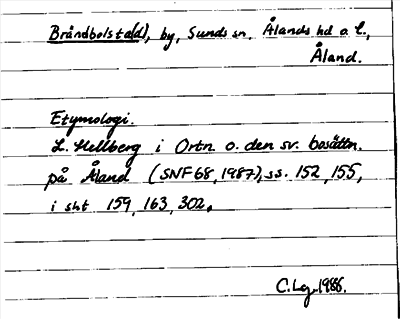 Bråndbolsta(d), by, Sunds sn. Ålands hd o. l.,
Åland.
Etymologi.
L. Hellberg i Ortn. o. den sv. bosättn.
på Åland (SNF 68, 1987), ss. 152, 155,
i sht 159, 163, 302.
C. Lg. 1988.